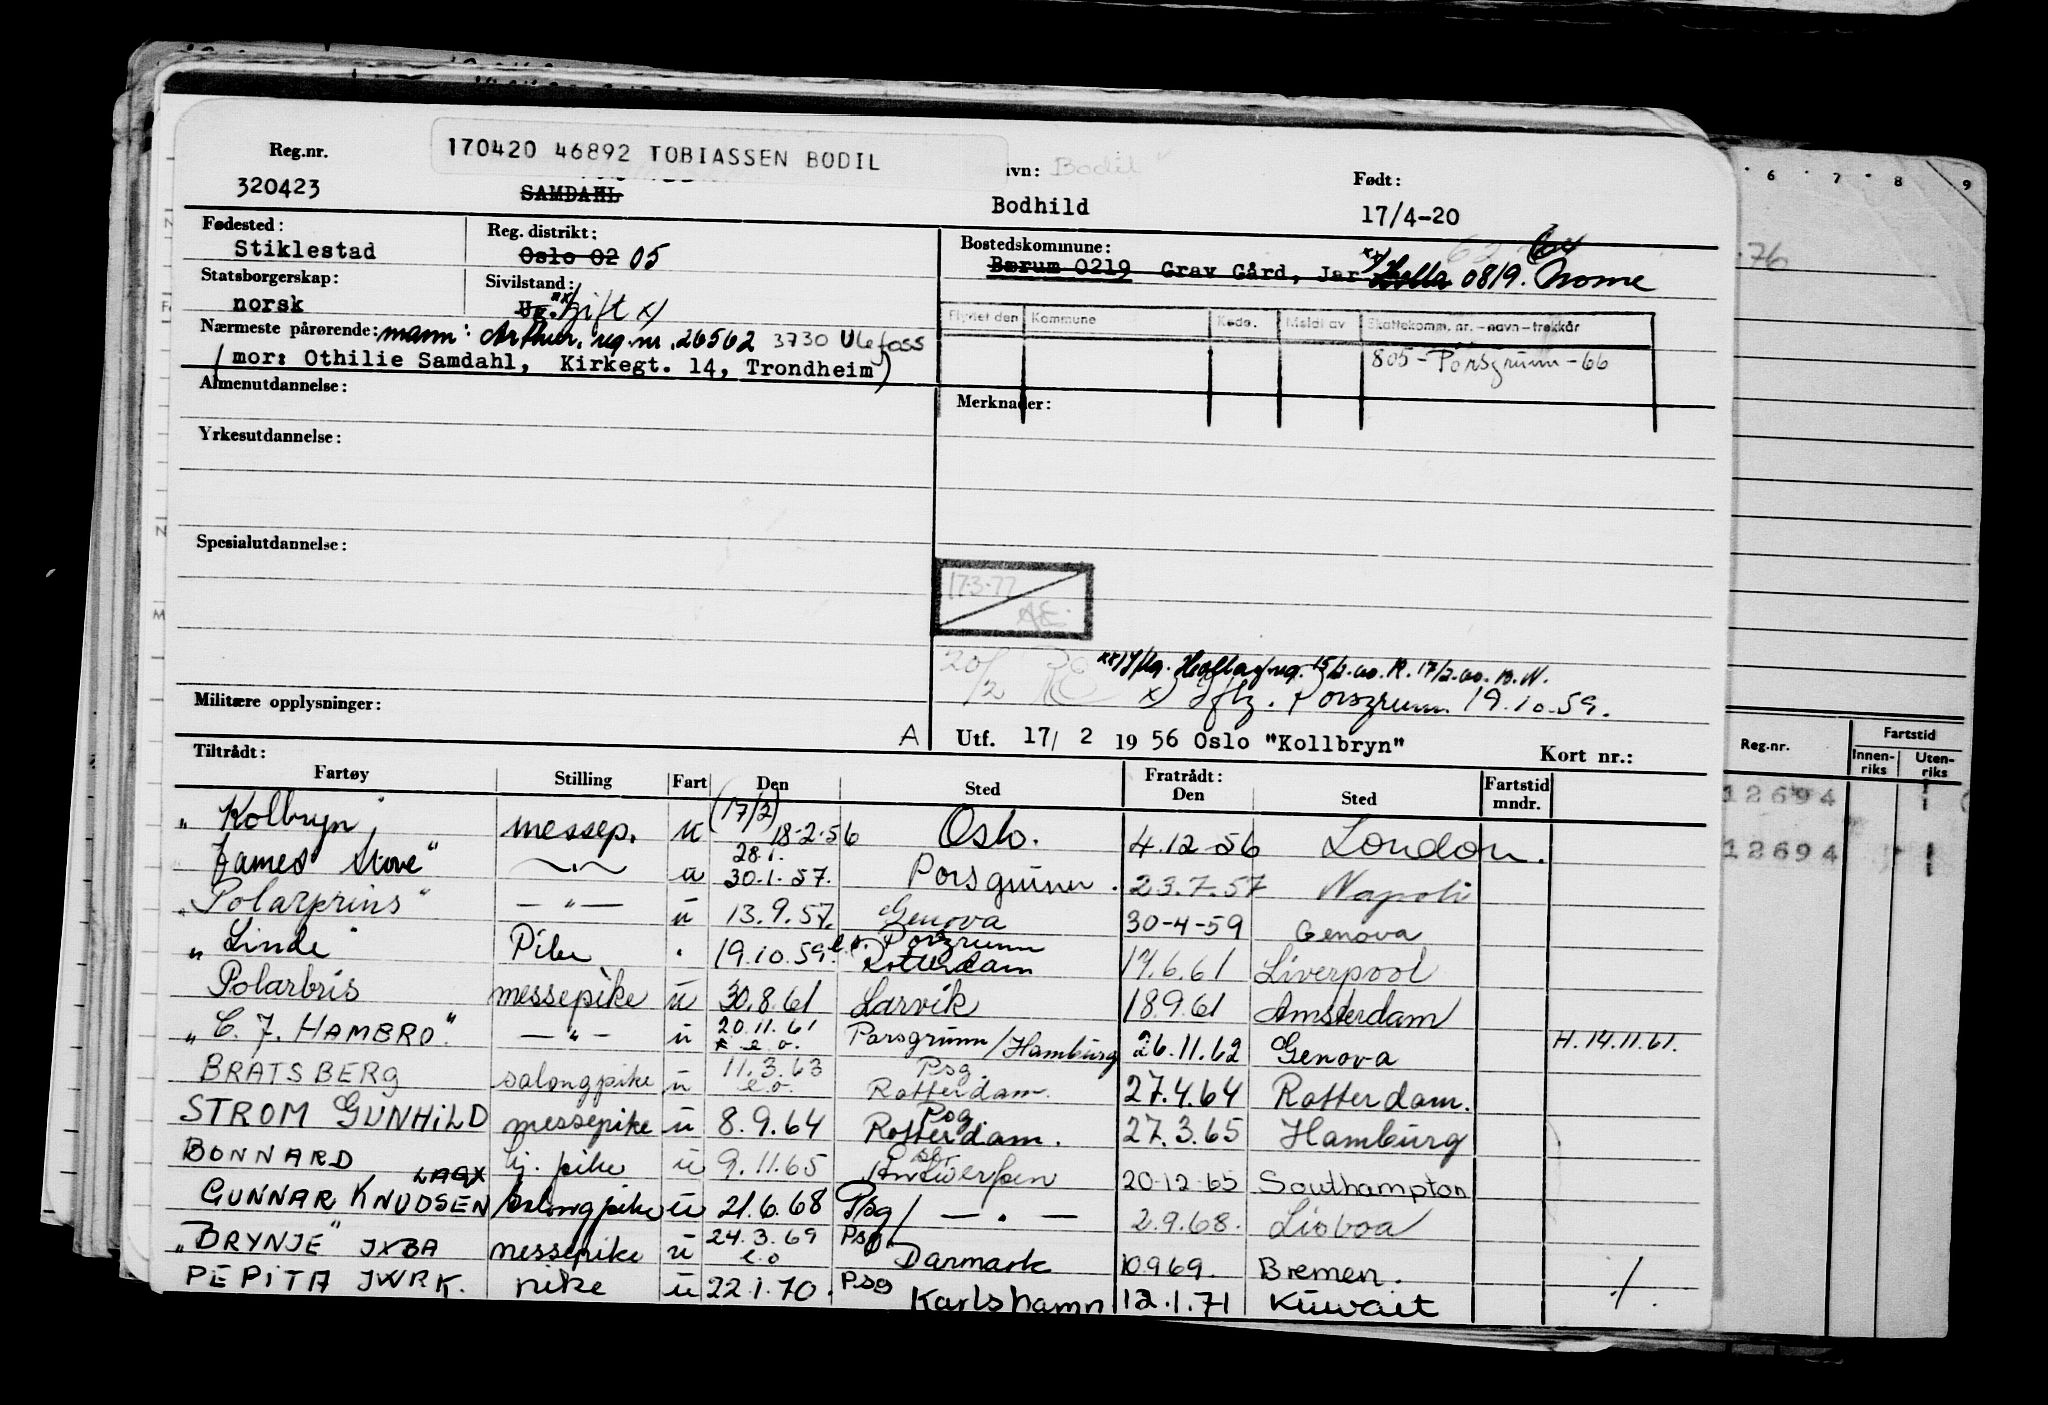 170420 46892 TOBIASSEN BODIL
Reg.nr. ivn: Bodil Født:
320423 SAMDAHL Bodhild 17/4-20
Fødested: Reg. distrikt: Bostedskommune:
Stiklestad Oslo 02 05 Bærum 0219 Grav Gård, Jar Holla 0819. Nome
Statsborgerskap: Sivilstand:
norsk Ug. Gift x)
Flyttet den Kommune Kode. Meldt av Skattekomm. nr. - navn - trekkår
805 - Porsgrunn - 66
Nærmeste pårørende: mann: Arthur, reg. nr. 26562 3730 Ulefoss
(mor: Othilie Samdahl, Kirkegt. 14, Trondheim)
Almenutdannelse: Merknader:
Yrkesutdannelse:
Spesialutdannelse:
17-3-77
AE.
20/2
15/2.60. R. 17/2.60. B.N.
x) Porsgrunn 19.10.59.
Militære opplysninger:
A Utf. 17/ 2 19 56 Oslo "Kollbryn" Kort nr.:
Tiltrådt: Fratrådt:
Fartøy Stilling Fart Den Sted Den Sted Fartstid mndr.
"Kolbryn" messep. u (17/2) 18-2-56 Oslo. 4.12-56 London.
James Stove" —〃— a 28.1. 30.1.57. Porsgrunn. 23.7.57 Napoli
"Polarprins" —〃— u 13.9.57. Genova 30-4-59 Genova
"Linde" Pike . 19.10.59 e.o. Porsgrunn Rotterdam 17.6.61 Liverpool
Polarbris messepike u 30.8.61 Larvik 18.9.61 Amsterdam
"C. J. HAMBRO" —〃— u 20.11.61 e.o. Porsgrunn/Hamburg 26.11.62 Genova H.14.11.61.
BRATSBERG salongpike u 11.3.63 e.o. Psg Rotterdam. 27.4.64 Rotterdam.
STROM GUNHILD messepike u 8.9.64 Psg Rotterdam. 27.3.65 Hamburg
BONNARD pike u 9.11.65 Antwerpen 20-12-65 Southampton
GUNNAR KNUDSEN LAGX salongpike u 21.6.68 Psg/ —〃— 2.9.68. Lisboa
"BRYNJE" JXBA messepike u 24.3.69 e.o Psg Danmark 10.9.69. Bremen.
PEPITA JWRK. pike u 22.1.70. Psg Karlshamn 12.1.71 Kuwait /.
6 7 8 9
.76
Reg.nr. Fartstid
Innenriks Utenriks
12694
12694